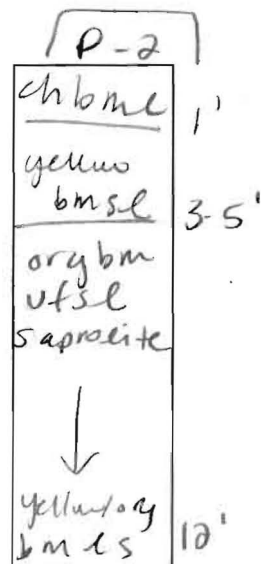 P-2
chbme
1'
yellow
bmsl
3-5'
orgbm
vfsl
saprolite
yellow/org
bmls
12'